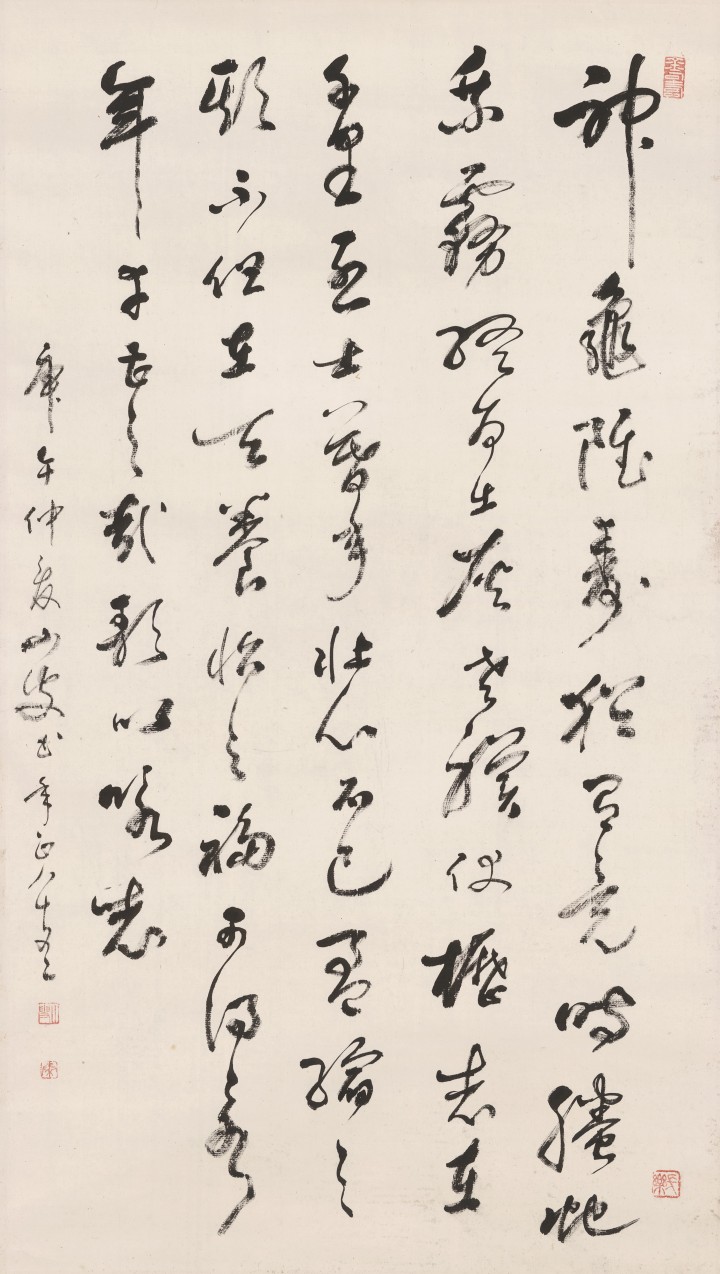 神龜雖壽猶有竟時螣蛇
乘霧終為土灰老驥伏櫪志在
千里烈士暮年壯心不已盈縮之
期不但在天養怡之福可得永
年幸甚至哉歌以咏誌
庚午仲夏山叟书年正八十